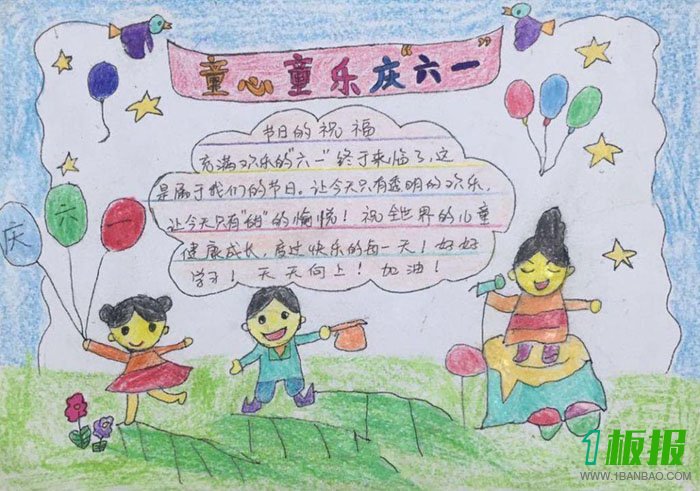 童心童乐庆“六一”
庆六一
节日的祝福
充满欢乐的“六一”终于来临了,这
是属于我们的节日。让今天只有透明的欢乐,
让今天只有“甜”的愉悦!祝全世界的儿童
健康成长,度过快乐的每一天!好好
学习!天天向上!加油!
1板报
WWW.1BANBAO.COM